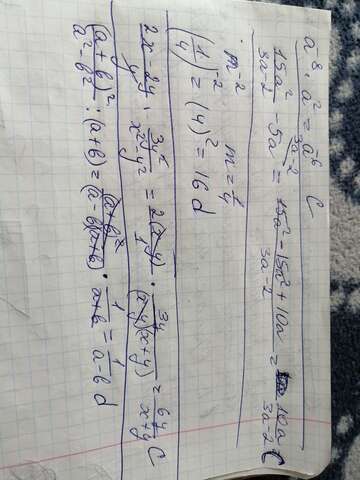 a⁸ : a² = a⁶ C
15a²/3a-2 - 5a = 15a² - 15a² + 10a/3a-2 = 10a/3a-2 C
m⁻² m = 1/4
(1/4)⁻² = (4)² = 16 d
2x-2y/y · 3y²/x²-y² = 2(x-y)/1 · 3y/(x-y)(x+y) = 6y/x+y C
(a+b)²/a²-b² : (a+b) = (a+b)²/(a-b)(a+b) · 1/a+b = 1/a-b d